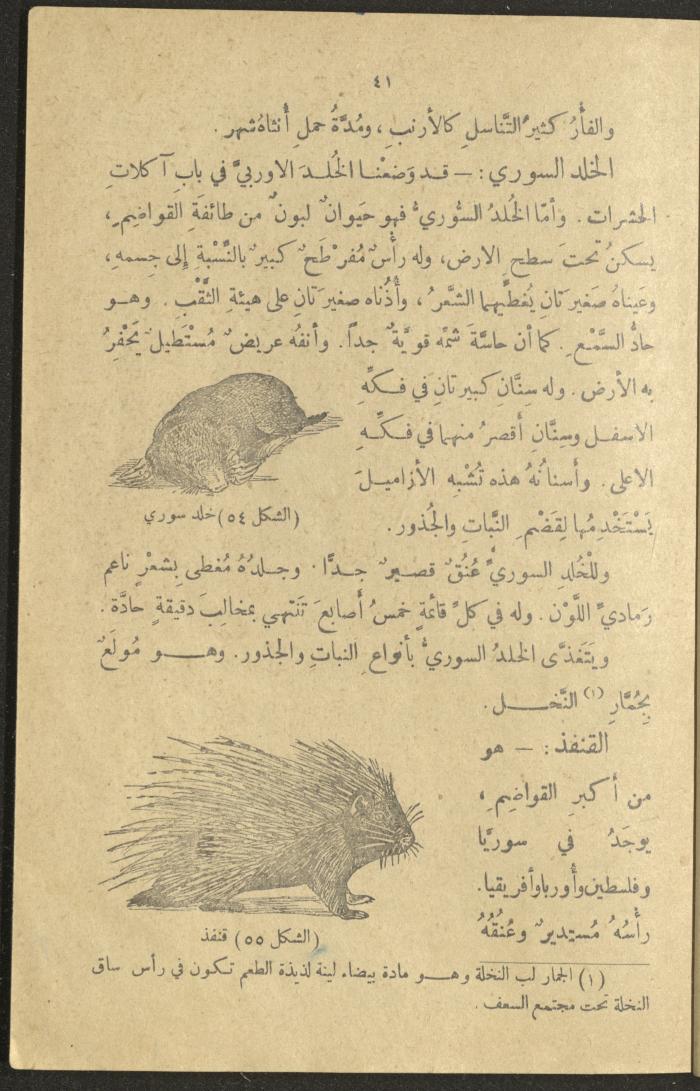 ٤١
والفأْرُ كثيرُ التَّناسلِ كالأرنبِ ، ومُدَّةُ حملِ أُنثاهُ شهر .
الخلد السوري : — قـد وَضعْنـا الخُلـدَ الاوربيَّ في بابِ آكلاتِ
الحشراتِ . وأمّا الخُلدُ السُّوريُّ فهو حَيوانٌ لبونٌ من طائفةِ القواضِمِ ،
يسكنُ تحتَ سطحِ الارض ، وله رأْسٌ مُفرْطَحٌ كبيرٌ بالنِّسْبةِ إلى جِسمهِ ،
وعَيناهُ صَغيرَتانِ يُغطِّيهما الشَّعَرُ ، وأُذُناه صغيرَتانِ على هيئةِ الثُّقْبِ . وهـو
حادُّ السَّمْعِ . كما أن حاسَّةَ شمِّه قويَّةٌ جداً . وأنفُه عريضٌ مُسْتَطيلٌ يَحْفِرُ
به الأرض . وله سِنَّانِ كبيرتانِ في فـكِّهِ
الاسفـل وسِنَّانِ أقصرُ منهما في فـكِّـهِ
الاعلى . وأسنانُهُ هذه تُشْبِه الأزاميـلَ
يَسْتَخْدِمُها لِقَضْمِ النَّباتِ والجُذور .
(الشكل ٥٤) خلد سوري
وللْخُلدِ السوريِّ عُنُقٌ قصـيرٌ جـدًّا . وجـلدُهُ مُغطى بِشعْرٍ ناعم
رَماديِّ اللَّوْن . وله في كلِّ قائمةٍ خمسُ أَصابعَ تَنتهـي بمخالِبَ دقيقةٍ حادَّة .
ويَتَغذَّى الخلدُ السوريُّ بأنواعِ النباتِ والجذور . وهـــو مُولَعٌ
بِجُمَّارِ (١) النَّخـــل .
القنفذ : — هو
من أكبرِ القواضِمِ ،
يوجَدُ في سوريَّا
وفلسطين وأُوربا وأفريقيا .
رأْسُهُ مُستديرٌ وعُنُقُهُ
(الشكل ٥٥) قنفذ
(١) الجمار لب النخلة وهـــو مادة بيضاء لينة لذيذة الطعم تـكون في رأس ساق
النخلة تحت مجتمع السعف .